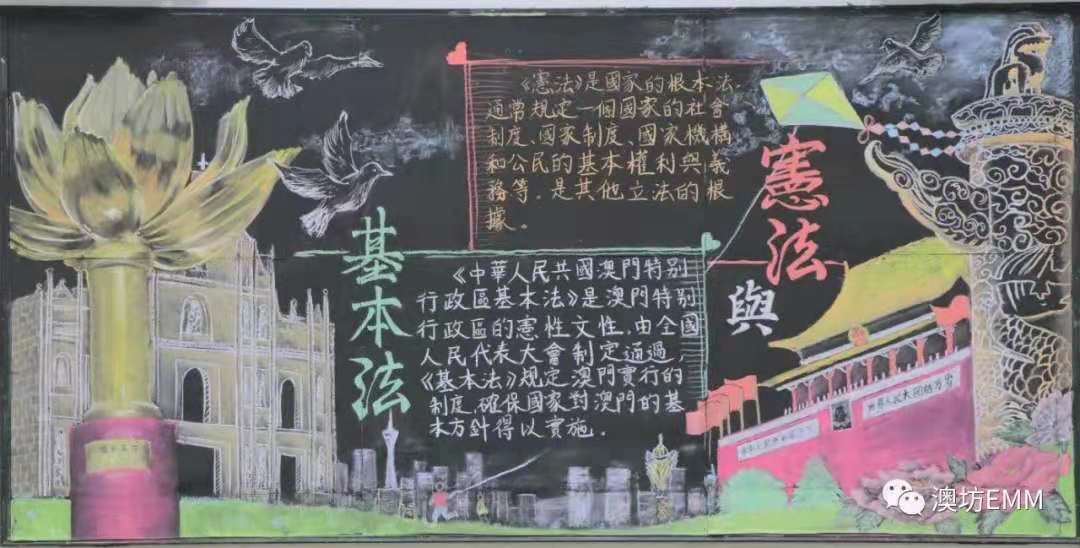 憲法
與
基本法
《憲法》是國家的根本法,
通常規定一個國家的社會
制度、國家制度、國家機構
和公民的基本權利與義
務等,是其他立法的根
據。
《中華人民共國澳門特別
行政區基本法》是澳門特別
行政區的憲性文性,由全國
人民代表大會制定通過,
《基本法》規定澳門實行的
制度,確保國家對澳門的基
本方針得以實施。
澳坊EMM